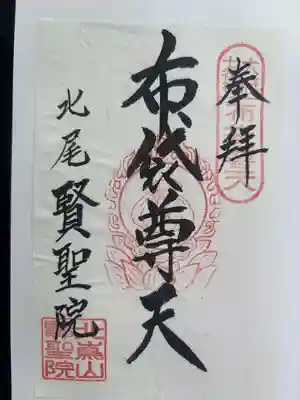 奉拝
布袋尊天
北尾 賢聖院
北嵩山
賢聖院